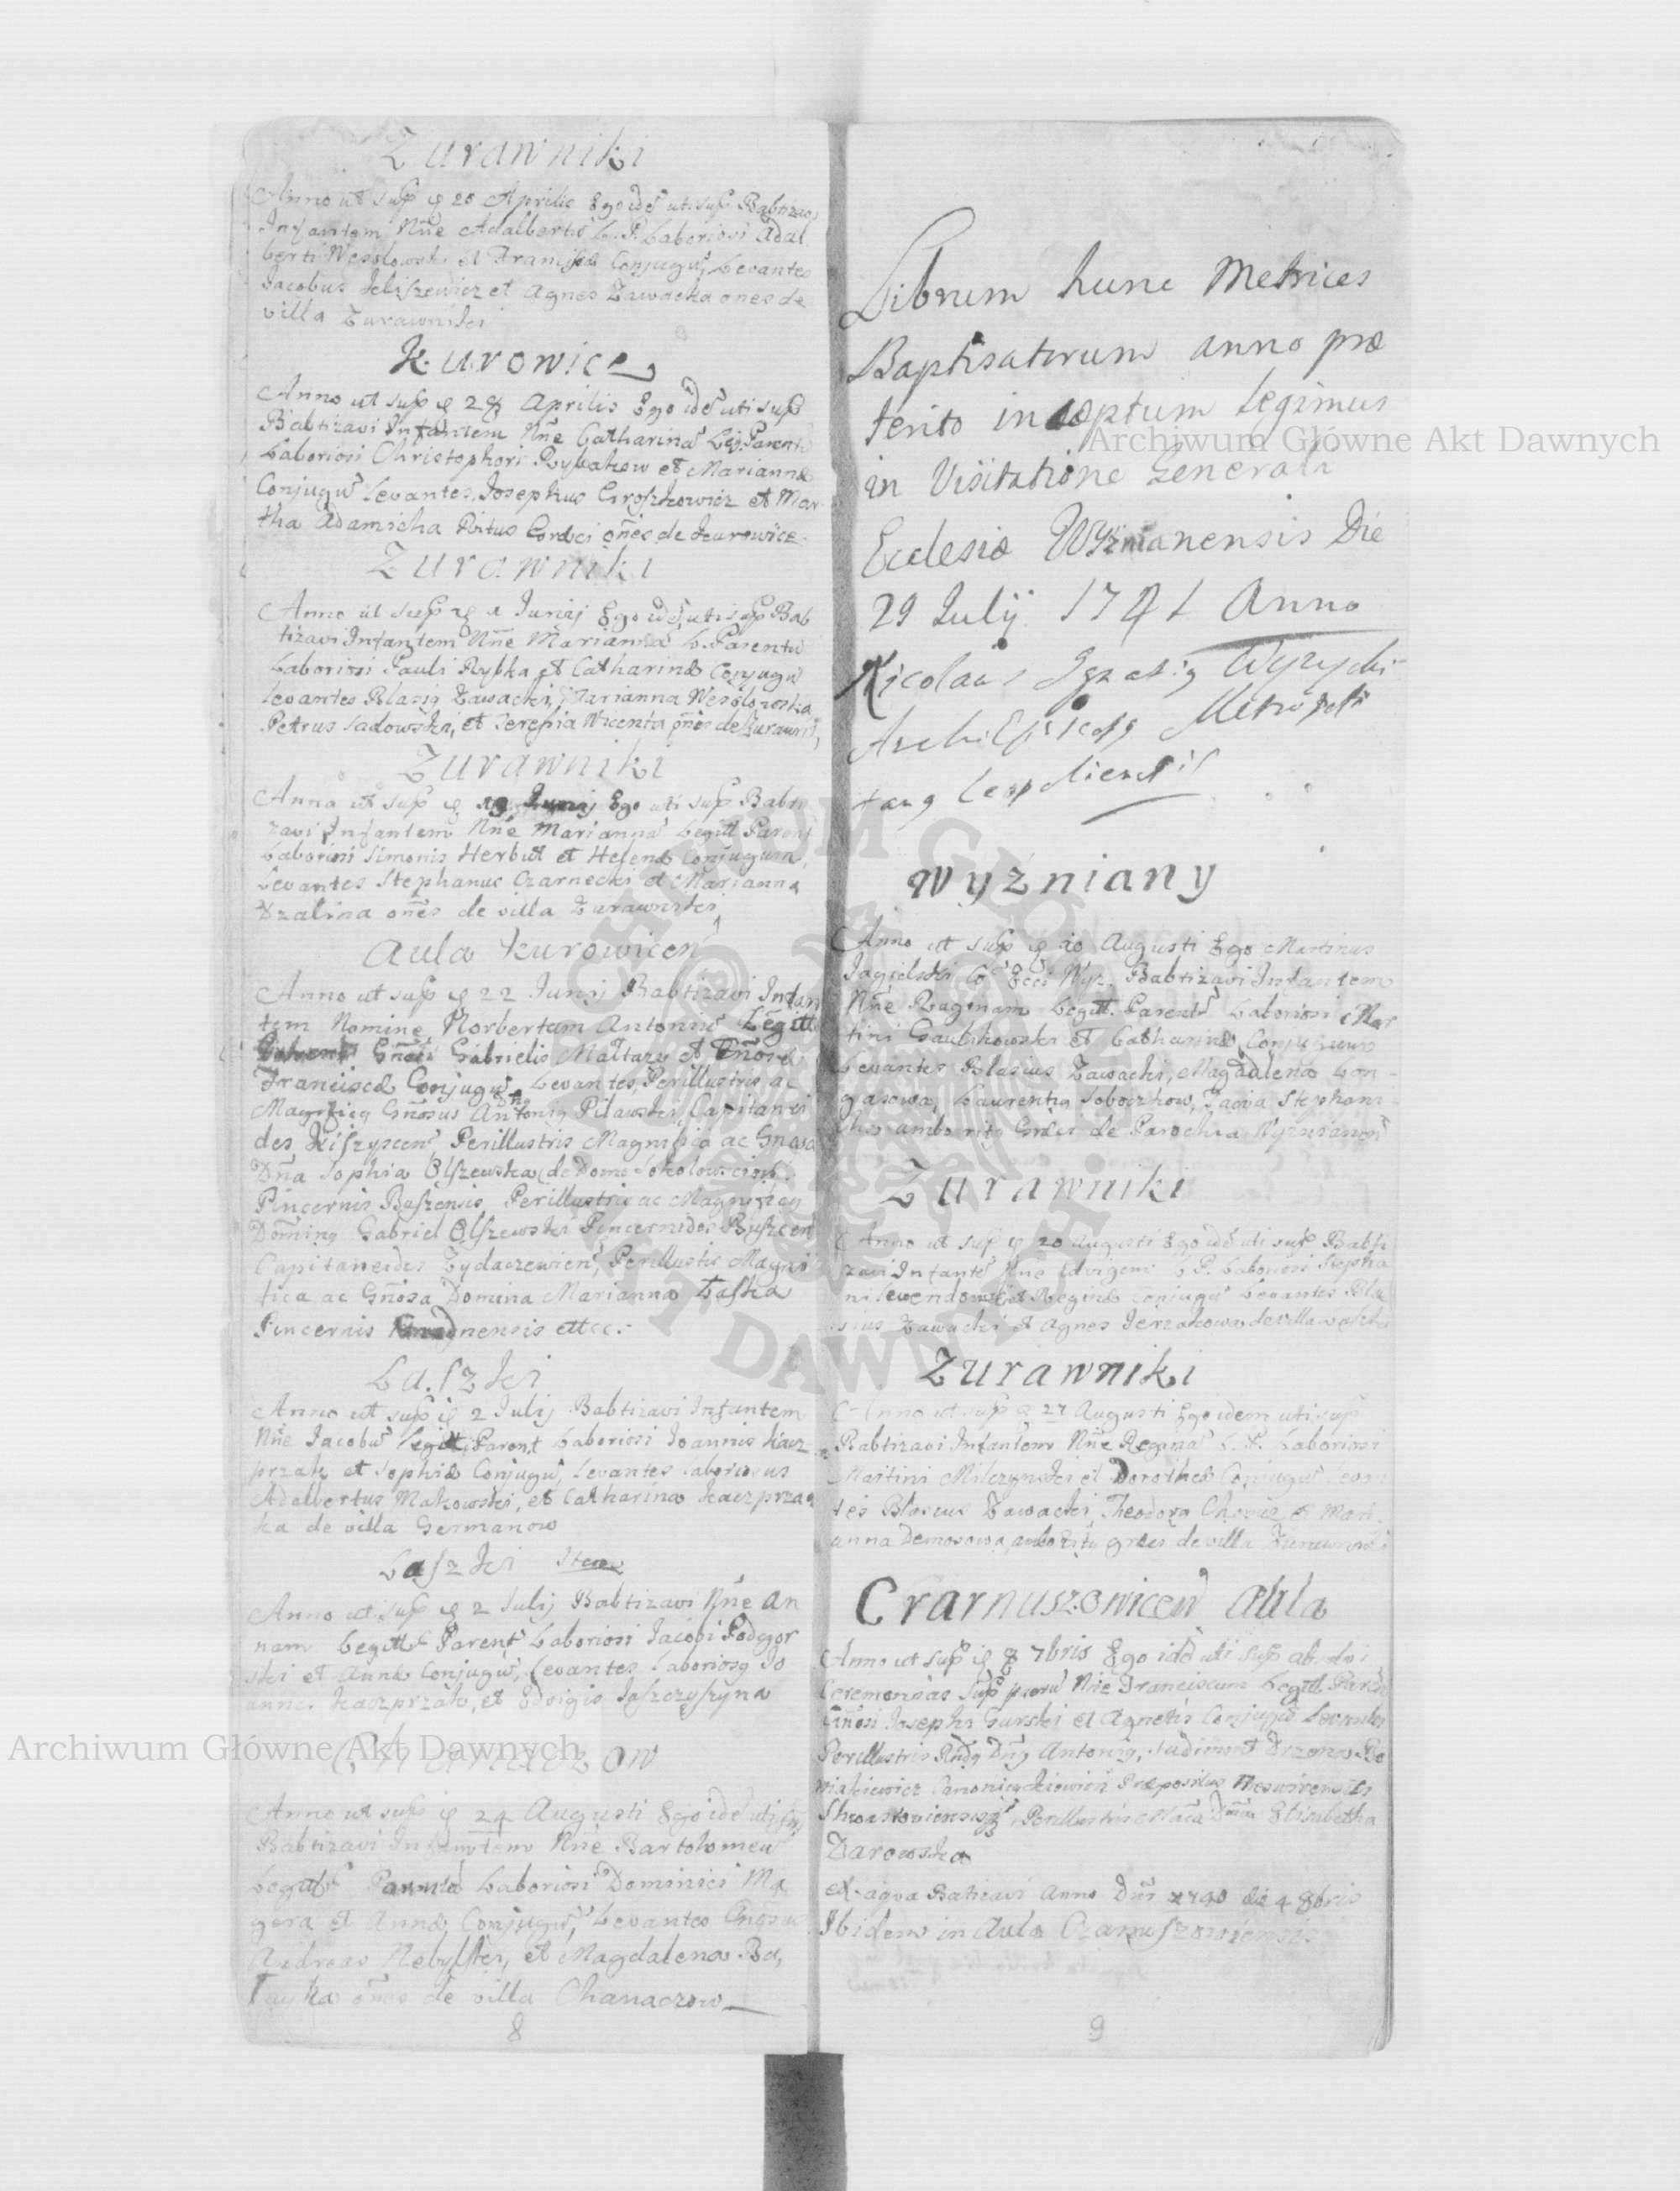 Zurawniki
Anno ut sup 20 Aprilis Ego idẽ uti sup Babtizavi
Infantem Nñe Adalbertũ L. P. Laboriosi Adal
berti Wesolowski et Franciscæ Conjugũ, Levantes
Jacobus Jeliszewicz et Agnes Zawacka onẽs de
villa Zurawniki
Kurowice
Anno ut sup 28 Aprilis Ego idẽ uti sup
Babtizavi Infantem Nñe Catharinã Leg. Parent
Laboriosi Christophori Rybakow et Mariannæ
Conjugũ Levantes Josephus Groszkowicz et Mar
tha Adamicha Ritus Græci oñes de Kurowice
Zurawniki
Anno ut sup 1 Junij Ego idẽ uti sup Bab
tizavi Infantem Nñe Mariannã L. Parentũ
Laboriosi Pauli Rybka et Catharinæ Conjugũ
Levantes Blasig Zawacki, Marianna Wesolowska
Petrus Sadowski, et Wicenta oñes de Zurawni,
Zurawniki
Anno ut sup 19 Junij Ego uti sup Babti
zavi Infantem Nñe Mariannã Legitt Parent
Laboriosi Simonis Herbut et Helenæ Conjugum,
Levantes Stephanus Czarnecki et Marianna
Dzalina oñes de villa Zurawniki
Aula Kurowicen
Anno ut sup 22 Junij Babtizavi Infan
tem Nomine Norbertum Antoniũ Legitt
Gñosi Gabrielis Maltazy et Gñosæ
Franciscæ Conjugũ Levantes, Perillustris ac
Magnificg Gñosus Antonig Pilawski Capitanei
des Perillustris Magnifica ac Gnosa
Dña Sophia Olszewska de Domo
Pincernis Perillustris ac Magnificg
Doming Gabriel Olszewski Pincernides
Capitaneides Zydaczewien, Perillustris Magni
fica ac Gñosa Domina Marianna Laska
Pincernis ettcc.
Laszki
Anno ut sup 2 Julij Babtizavi Infantem
Nñe Jacobũ Legitt. Parent Laboriosi Joannis Kacz
przak et Sophiæ Conjugũ, Levantes Laboriosus
Adalbertus Makowski, et Catharina Kaczprza
ka de villa Germanow
Laszki Item
Anno ut sup 2 Julij Babtizavi Nñe An
nam Legitt Parent Laboriosi Jacobi Podgor
ski et Annæ Conjugũ, Levantes Laboriosg Jo
annes Kaczprzak, et Edvigis Jaszczyszyna
Chanaczow
Anno ut sup 24 Augusti Ego idẽ uti sup
Babtizavi Infantem Nñe Bartholomeũ
Laboriosi Dominici Ma
gera et Annæ Conjugũ, Levantes
Andreas et Magdalena Ba,
oñes de villa Chanaczow
8
Librum hunc Metrices
Baptisatorum anno præ
terito incæptum Legimus
in Visitatione Generali
Ecclesiæ Wyżnianensis Die
29 Julij 1741 Anno
Nicolaus Ignatig Wyzycki
Archi Episcopg Metropoli
tang Leopoliensis
Wyżniany
Anno ut sup 10 Augusti Ego Martinus
Jagielski Wyz. Babtizavi Infantem
Nñe Reginam Legitt. Parent Laboriosi Mar
tini Gaulikowski et Catharinæ Conjugum
Levantes Blasius Zawacki, Magdalena Lon
gasowa, Laurentig Sobockow,
ambo ritg de Parochia
Zurawniki
Anno ut sup 20 Augusti Ego idẽ uti sup Babti
zavi Infantẽ Nñe Edvigem L. P. Laboriosi Stepha
ni et Reginæ Conjugũ Levantes Bla
sius Zawacki et Agnes de villa Laszki
Zurawniki
Anno ut sup 27 Augusti Ego idem uti sup
Babtizavi Infantem Nñe Reginã L. P. Laboriosi
Martini Milczynski et Dorotheæ Conjugũ Levan
tes Blasius Zawacki, Theodorg et Mari
anna Demosowa, ambo ritg græci de villa Zurawniki
Crarnuszowicen Aula
Anno ut sup 8 7bris Ego idẽ uti sup absolvi
Ceremonias sup puerũ Nñe Franciscum Legitt Paren
Gñosi Josephi Gurski et Agnetis Conjugũ Levantes
Perillustris Rndg Dng Antonig,
Canonicg Præpositus
Perillustris Dña Elisabetha
Darowska
ex aqva Batizavi Anno Dñi 1740 die 4 8bris
Ibidem in Aula
9
Archiwum Główne Akt Dawnych
Archiwum Główne Akt Dawnych
ARCHIWUM GŁÓWNE
AKT DAWNYCH